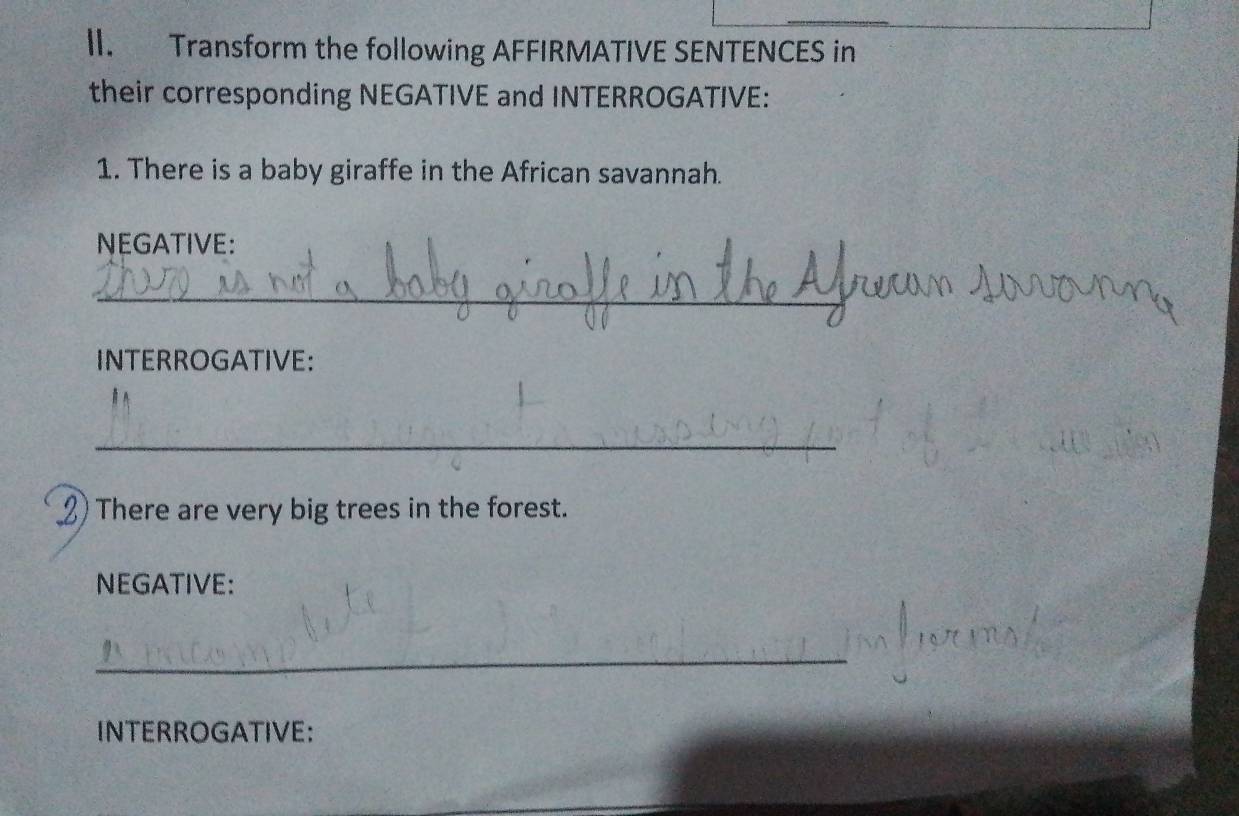 II. Transform the following AFFIRMATIVE SENTENCES in
their corresponding NEGATIVE and INTERROGATIVE:
1. There is a baby giraffe in the African savannah.
NEGATIVE:
there is not a baby giraffe in the Afrecan savanna
INTERROGATIVE:
missing part of question
2) There are very big trees in the forest.
NEGATIVE:
incomplete
INTERROGATIVE: